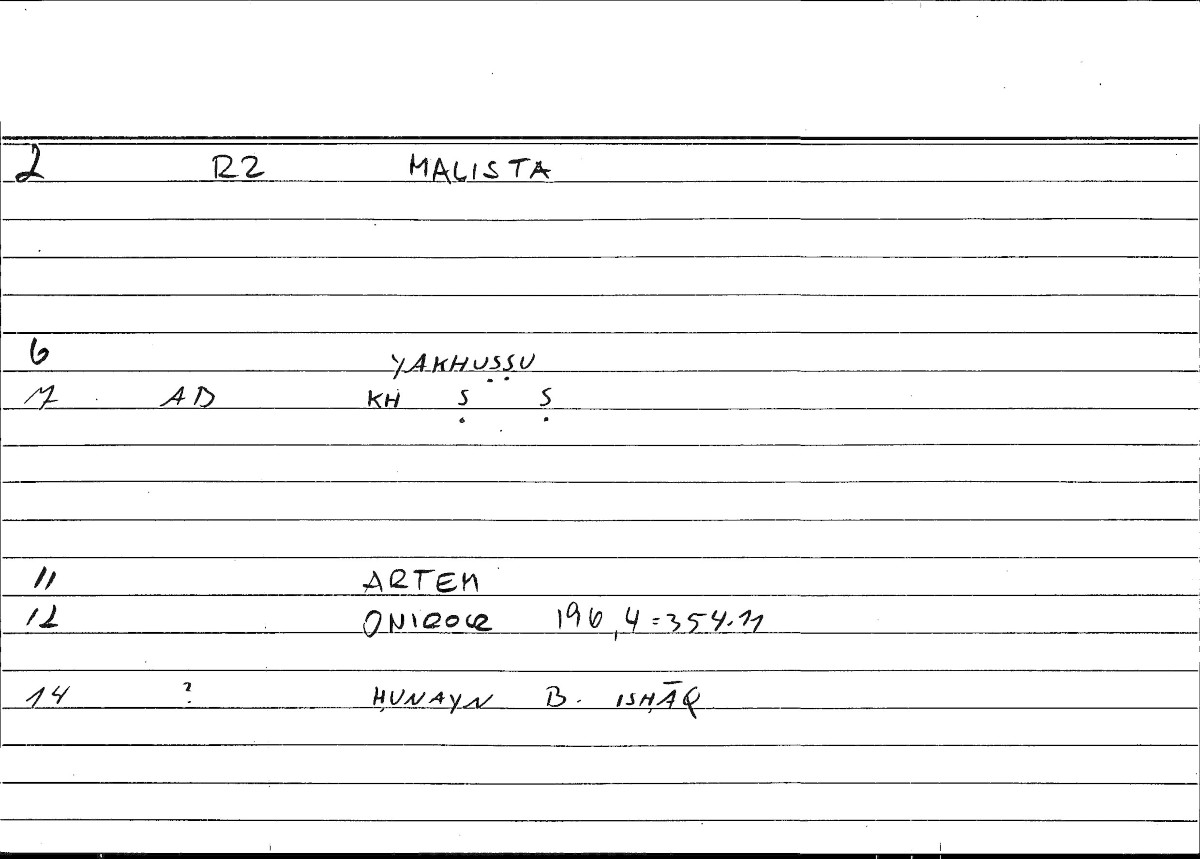 2 R2 MALISTA
6 YAKHUṢṢU
7 AD KH Ṣ Ṣ
11 ARTEM
12 ONIROCR 196,4=354.11
14 ? ḤUNAYN B. ISḤĀQ